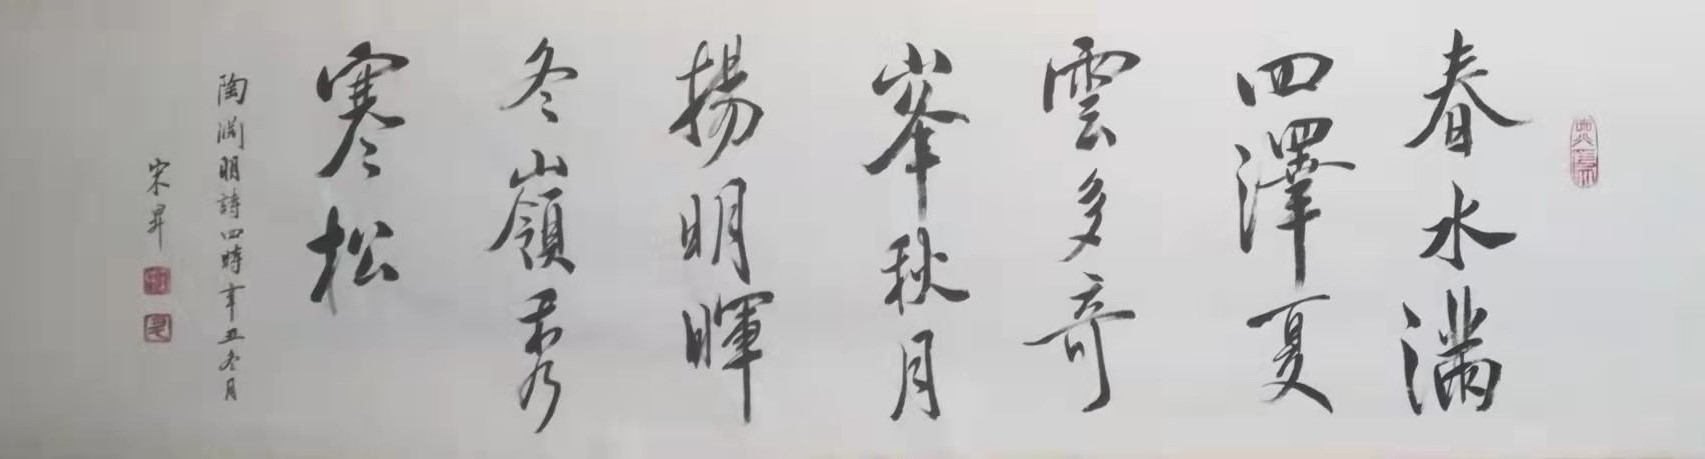 春水滿
四澤夏
雲多奇
峯秋月
揚明暉
冬嶺秀
寒松
陶淵明詩四時辛丑冬月
宋昇